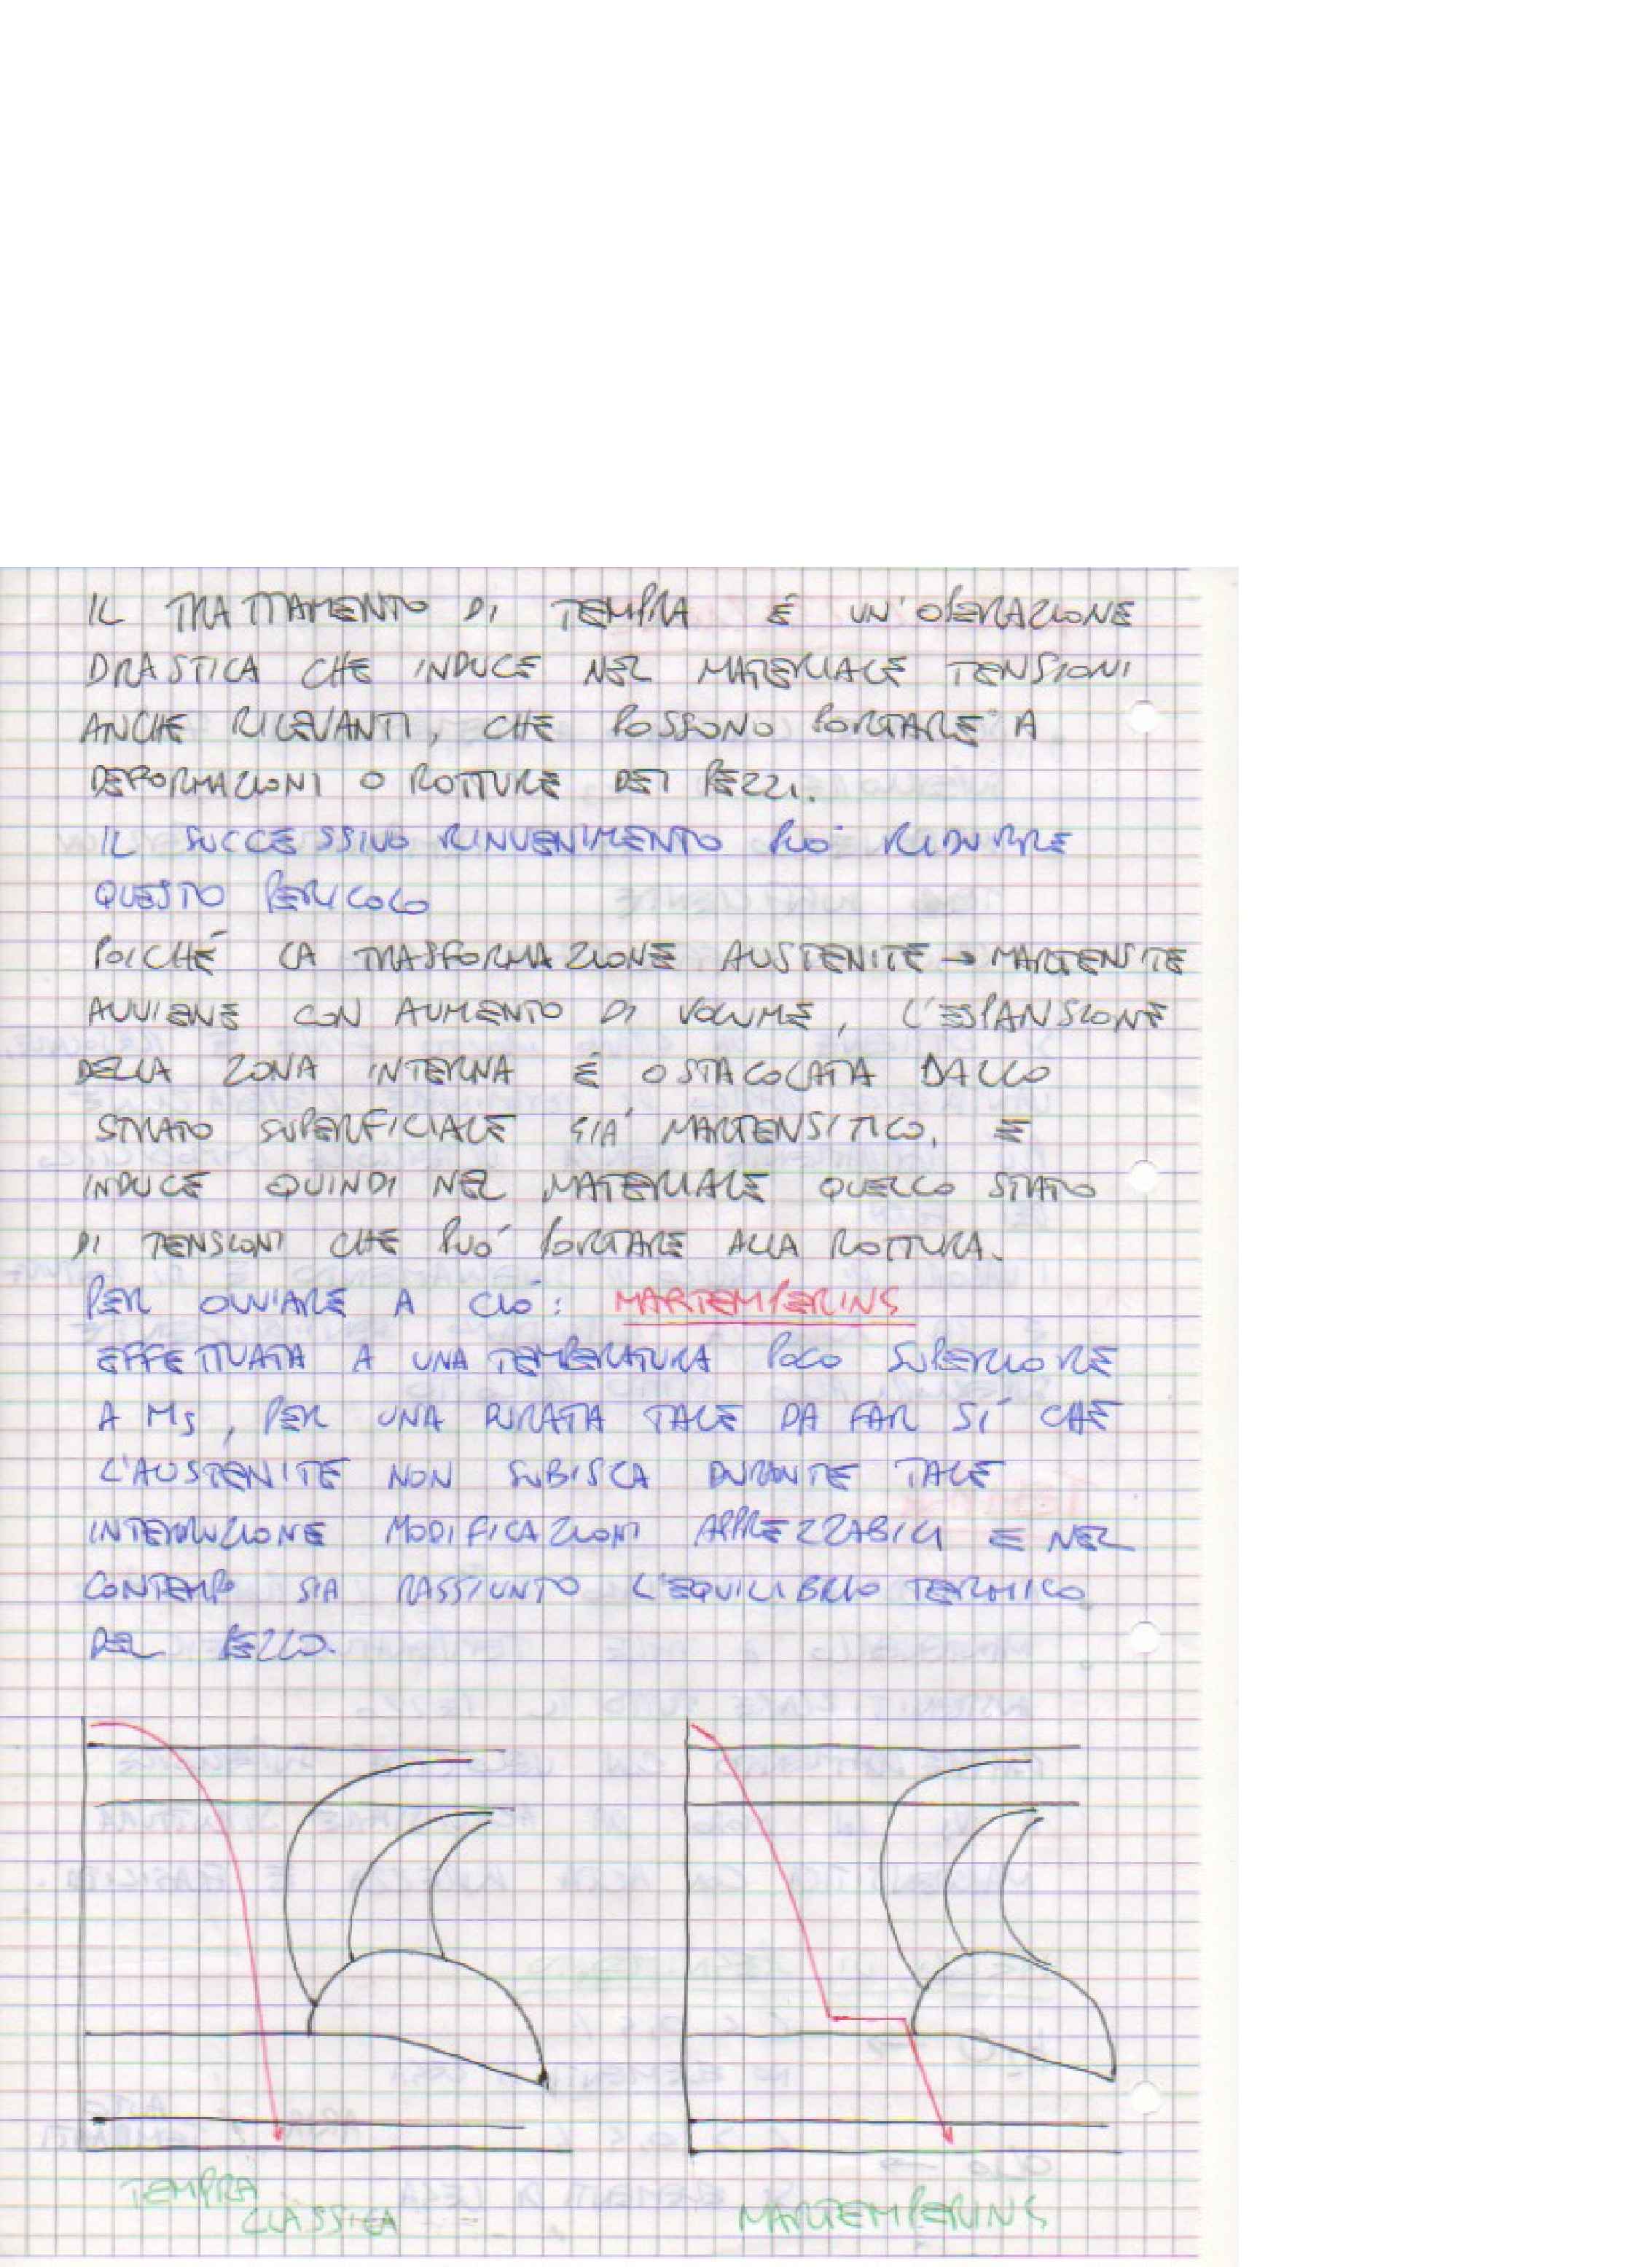 IL TRATTAMENTO DI TEMPRA É UN'OPERAZIONE
DRASTICA CHE INDUCE NEL MATERIALE TENSIONI
ANCHE RILEVANTI, CHE POSSONO PORTARE A
DEFORMAZIONI O ROTTURE DEI PEZZI.
IL SUCCESSIVO RINVENIMENTO PUÓ RIDURRE
QUESTO PERICOLO
POICHÉ LA TRASFORMAZIONE AUSTENITE → MARTENSITE
AVVIENE CON AUMENTO DI VOLUME, L'ESPANSIONE
DELLA ZONA INTERNA É OSTACOLATA DALLO
STRATO SUPERFICIALE GIÁ MARTENSITICO, E
INDUCE QUINDI NEL MATERIALE QUELLO STATO
DI TENSIONI CHE PUÓ PORTARE ALLA ROTTURA.
PER OVVIARE A CIÓ: MARTEMPERING
EFFETTUATA A UNA TEMPERATURA POCO SUPERIORE
A Ms, PER UNA DURATA TALE DA FAR SÍ CHE
L'AUSTENITE NON SUBISCA DURANTE TALE
INTERRUZIONE MODIFICAZIONI APPREZZABILI E NEL
CONTEMPO SIA RAGGIUNTO L'EQUILIBRIO TERMICO
DEL PEZZO.
TEMPRA CLASSICA
MARTEMPERING